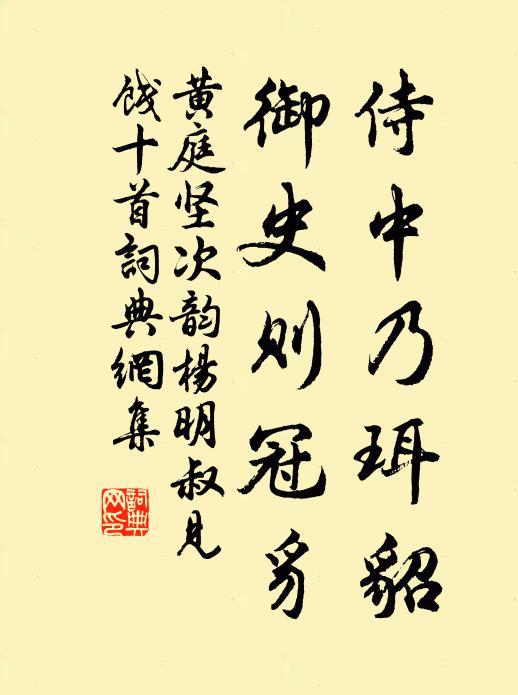 侍中乃珥貂
御史则冠豸
黄庭坚次韵杨明叔见
饯十首詞典網集
詞典
网印